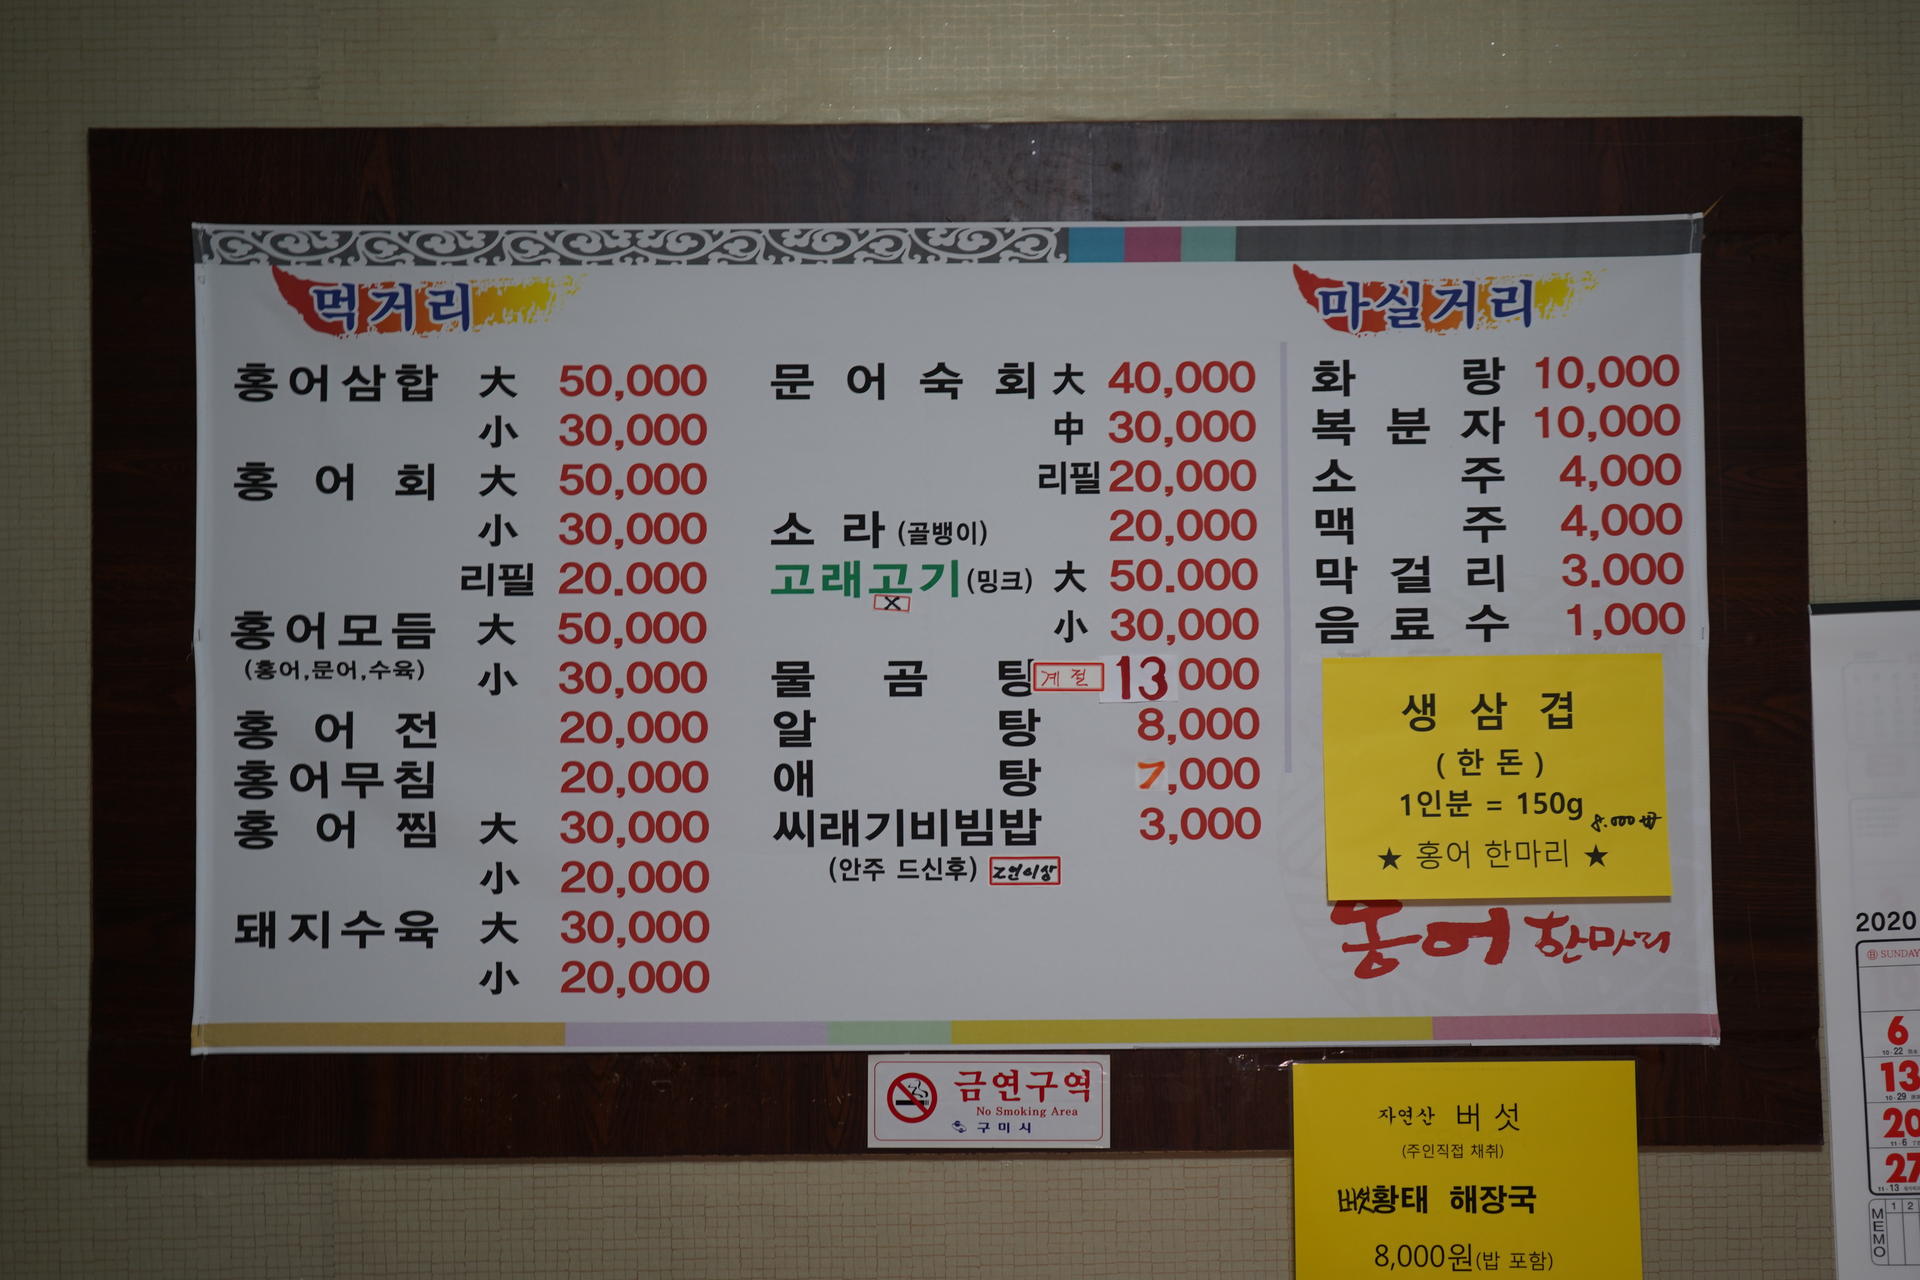 먹거리
홍어삼합 大 50,000
小 30,000
홍어회 大 50,000
小 30,000
리필 20.000
홍어모듬 大 50,000
(홍어,문어,수육) 小 30,000
홍어전 20,000
홍어무침 20,000
홍어찜 大 30,000
小 20,000
돼지수육 大 30,000
小 20,000
문어숙회 大 40,000
中 30,000
리필 20,000
소라 (골뱅이) 20,000
고래고기 (밍크) 大 50.000
X
小 30,000
물곰탕 계절 13 000
알탕 8,000
애탕 7,000
씨래기비빔밥 3,000
(안주 드신후) 2인이상
마실거리
화랑 10,000
복분자 10,000
소주 4,000
맥주 4,000
막걸리 3.000
음료수 1,000
생삼겹
(한돈)
1인분 = 150g
8.000
★ 홍어 한마리 ★
홍어 한마리
금연구역
No Smoking Area
구미시
자연산 버섯
(주인직접 채취)
버섯황태 해장국
8,000원(밥 포함)
2020
SUNDAY
6
10·22
13
10·29
20
11·6
27
11·13
MEMO
1 2